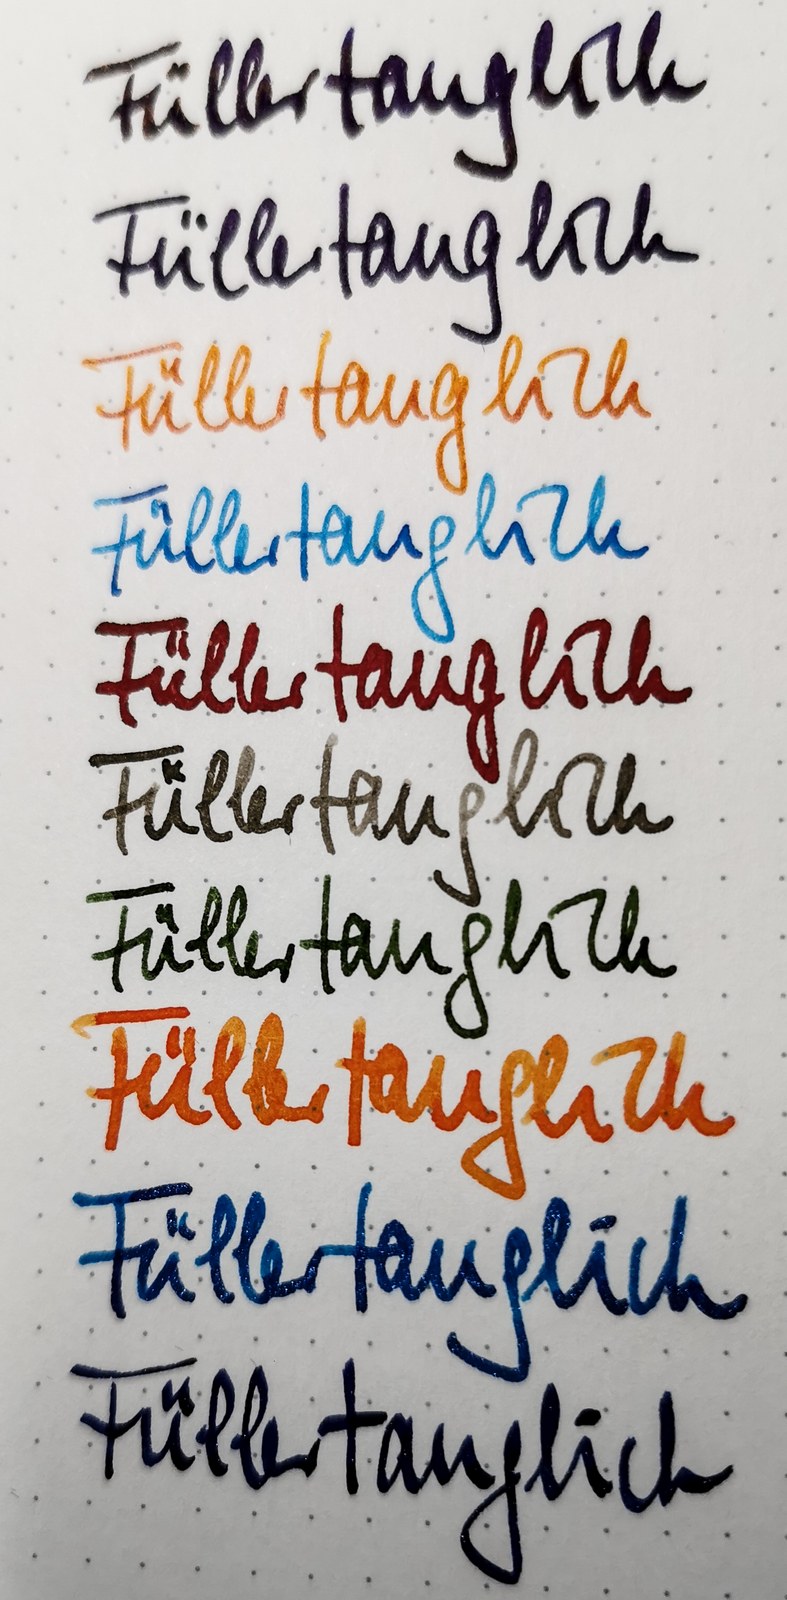 Füllertanglich
Füllertauglich
Füllertauglich
Füllertauglich
Füllertauglich
Füllertauglich
Füllertauglich
Füllertauglich
Füllertauglich
Füllertauglich